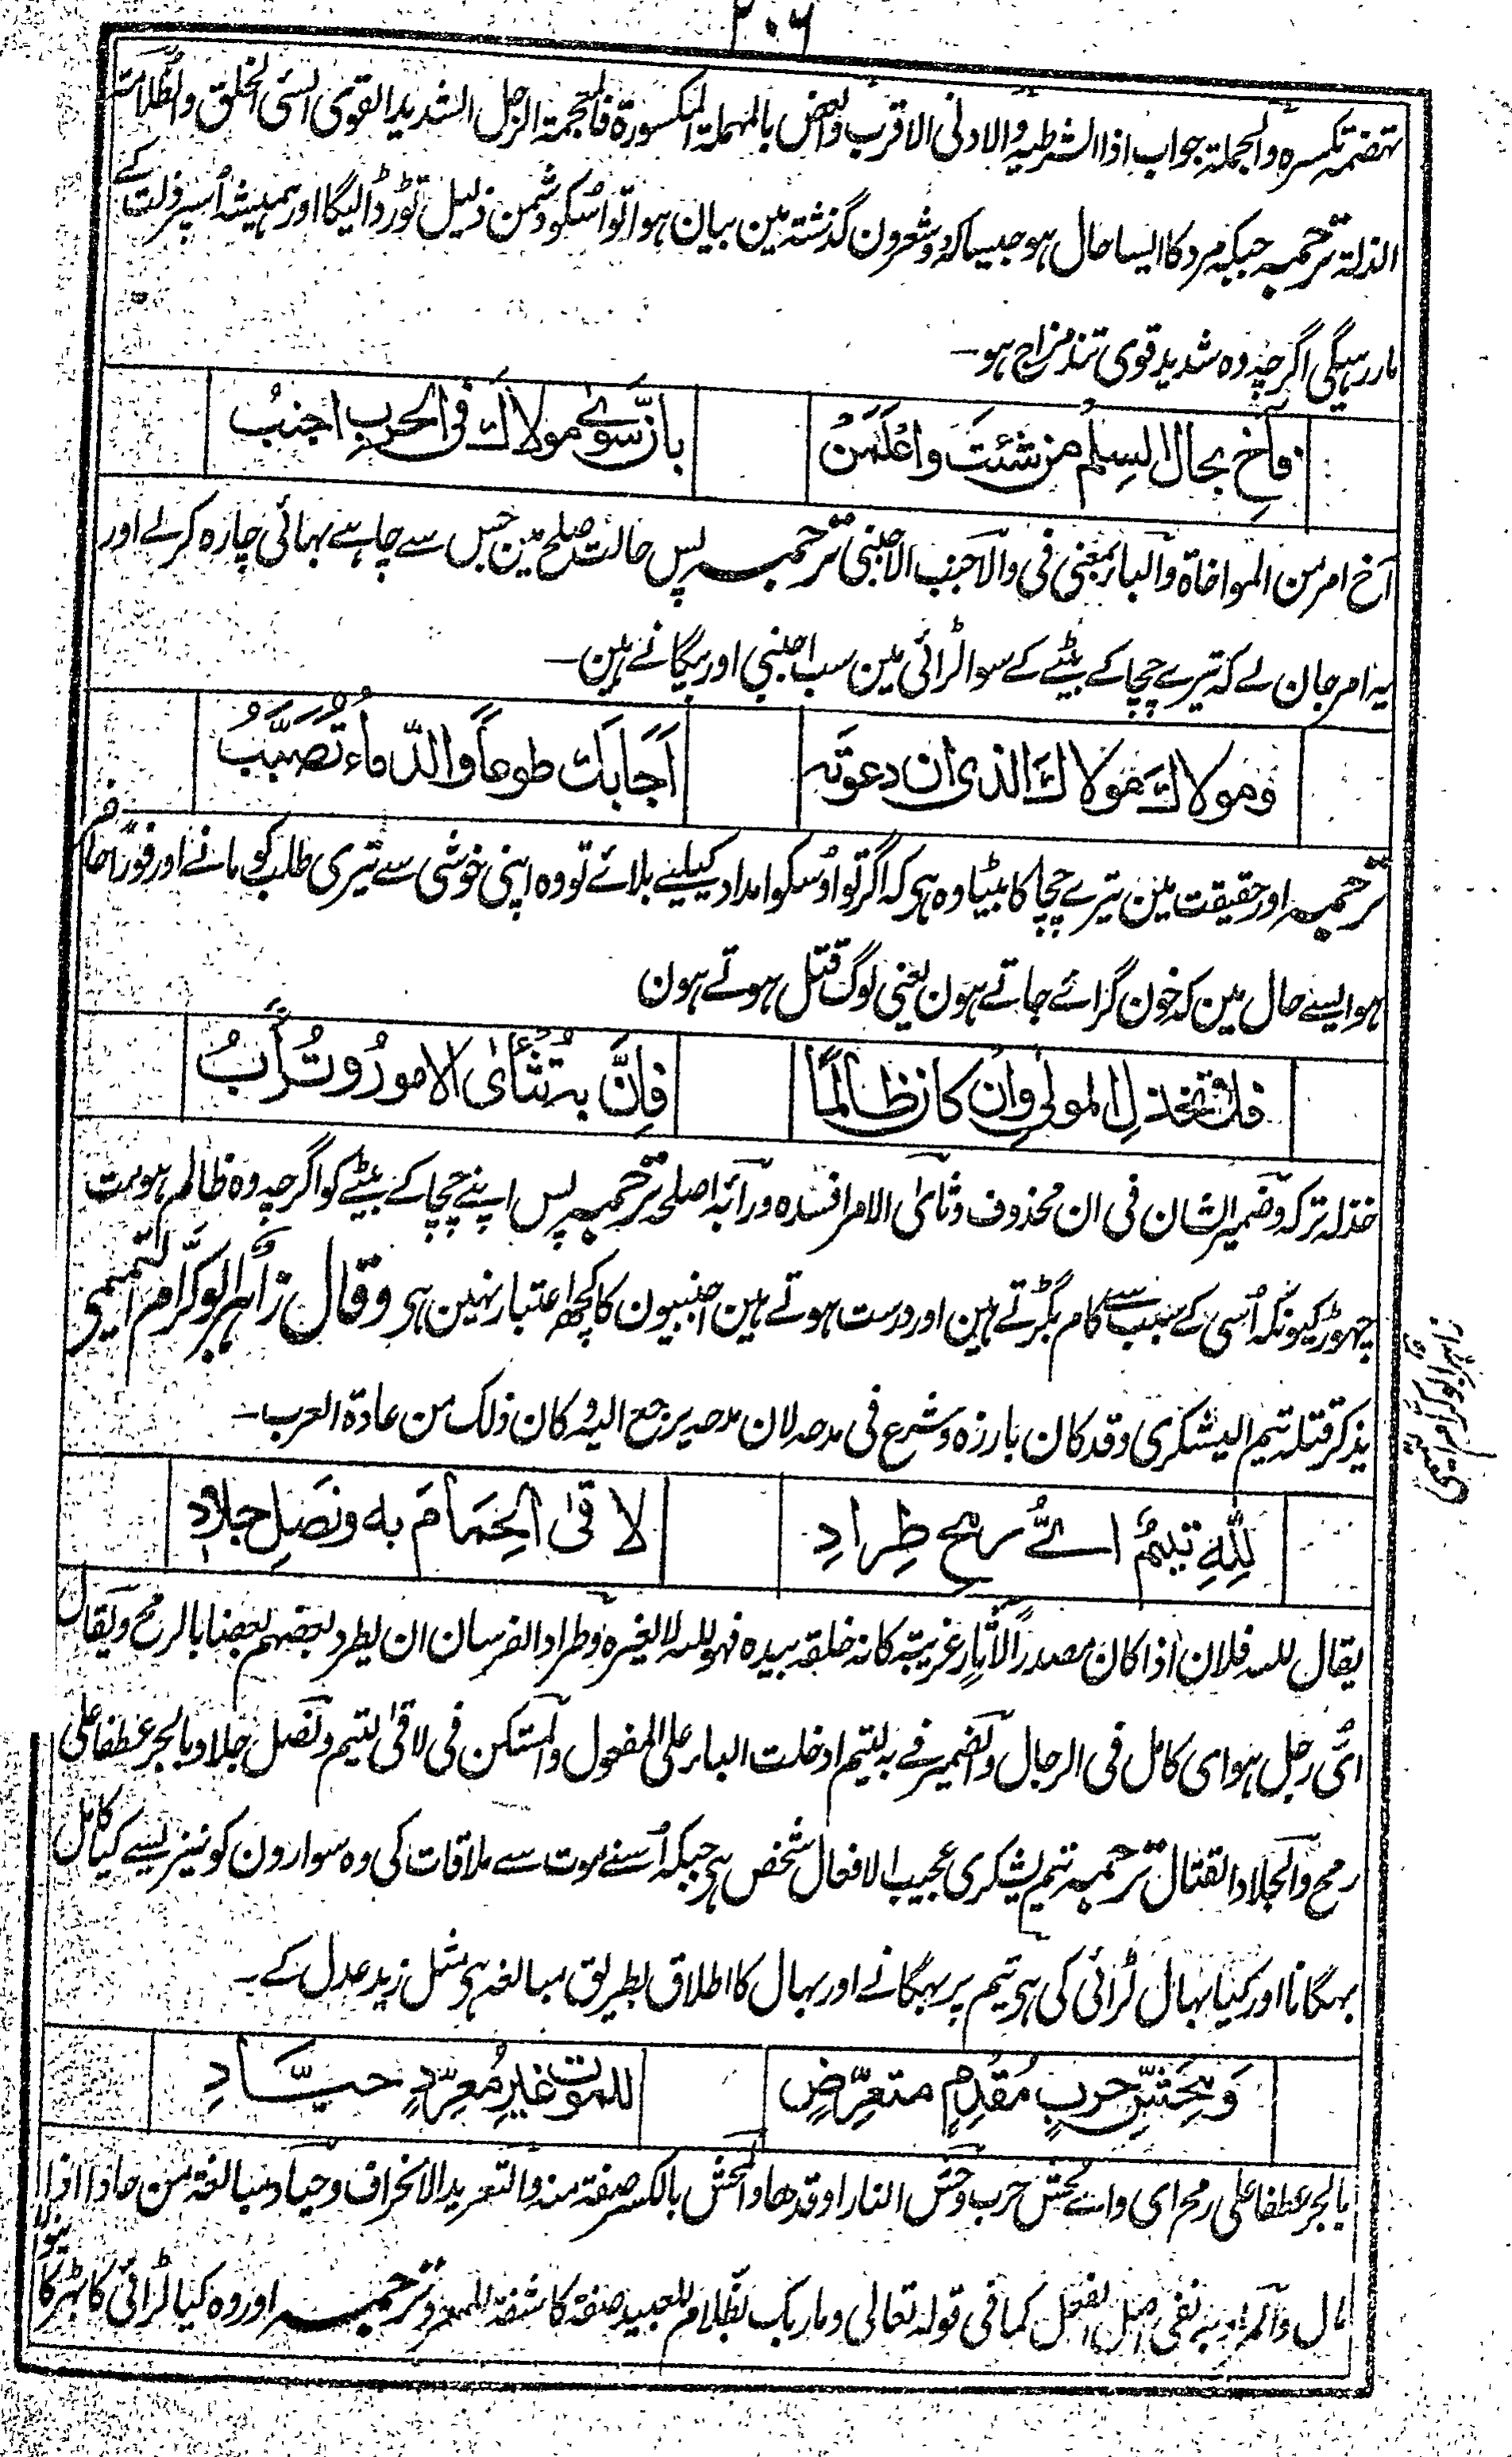 ۲۰۶
تهضمہ تکسرہ والجملۃ جواب اذا الشرطیہ والادنی الاقرب والعض بالمہملۃ المکسورۃ فالمعجمۃ الرجل الشدید القوی السئی الخلق والظلامۃ
الذلۃ ترجمہ جبکہ مرد کا ایسا حال ہو جیسا کہ دو شعرون گذشتہ مین بیان ہوا تو اُسکو دشمن ذلیل توڑ ڈالیگا اور ہمیشہ اُسپر ذلت کے
مار رہیگی اگرچہ وہ شدید قوی تند مزاج ہو۔
فآخِ بحال السِلمُ من شئتَ واعْلَمَنْ بانّ سَوٰی مولاکَ فی الحرب اجنبُ
آخ امر من المواخاۃ والباء بمعنی فی والاجنب الاجنبی ترجمہ پس حالت صلح مین جس سے چاہے بہائی چارہ کرلے اور
یہ امر جان لے کہ تیرے چچا کے بیٹے کے سوا لڑائی مین سب اجنبی اور بیگانے ہین۔
ومولاکَ مولاکَ الذی ان دعوتَہ اَجَابَکَ طوعاً والدّماءُ تُصَبَّبُ
ترجمہ اور حقیقت مین تیرے چچا کا بیٹا وہ ہر کہ اگر تو اوسکو امداد کیلیے بلائے تو وہ اپنی خوشی سے تیری طلب کو مانے اور فوراً حاضر
ہو ایسے حال مین کہ خون گرائے جاتے ہون یعنی لوگ قتل ہوتے ہون
فلا تخذلِ المولیٰ وان کان ظالمًا فانَّ بہ تُثأیٰ الامورُ وتُرأَبُ
خذلہ ترکہ وضمیر الشان فی ان محذوف وثأی الامر افسدہ ورأبہ اصلحہ ترجمہ پس اپنے چچا کے بیٹے کو اگرچہ وہ ظالم ہو مت
چہوڑ کیونکہ اُسی کے سبب سے کام بگڑتے ہین اور درست ہوتے ہین اجنبیون کا کچھ اعتبار نہین ہی وقال زاہر ابو کرّام التمیمی
یذکر قتلہ تیم الیشکری وقد کان بارزہ وشرع فی مدحہ لان مدحہ یرجع الیہ وکان ذلک من عادۃ العرب۔
لِلّٰهِ تیمٌ ایُّ رمحِ طِرادِ لاقیٰ الحِمامَ به ونصلِ جلادِ
یقال للہ فلان اذا کان مصدرًا لآثار غریبۃ کانہ خلقہ بیدہ فہو للہ لا لغیرہ وطراد الفرسان ان یطرد بعضہم بعضا بالرمح ویقال
ایُّ رجل ہو ای کامل فی الرجال والضمیر فے بہ لتیم ادخلت الباء علی المفعول والمستکن فی لاقیٰ لتیم ونصل جلاد بالجر عطفا علی
رمح والجلاد القتال ترجمہ تیم یشکری عجیب الافعال شخص ہی جبکہ اُسنے موت سے ملاقات کی وہ سوارون کو نیزلیسے کیا کامل
بہگانا اور کیا بہال لڑائی کی ہی تیم پر بہگانے اور بہال کا اطلاق بطریق مبالغہ ہی مثل زید عدل کے۔
وَمِحَشِّ حربٍ مُقدِمٍ متعرّضٍ للموت غیرِ مُعرِّدٍ حیّادِ
بالجر عطفا علی رمح ای واے محش حرب وحش النار اوقدھا والمحش بالکسر صفۃ منہ والتعرید الانحراف وحیاد مبالغۃ من حاد اذا
مال والمراد بہ نفی اصل الفعل کما فی قولہ تعالی وما ربک بظلام للعبید صفۃ کاشفۃ للمعرد ترجمہ اور وہ کیا لڑائی کا بہڑکا